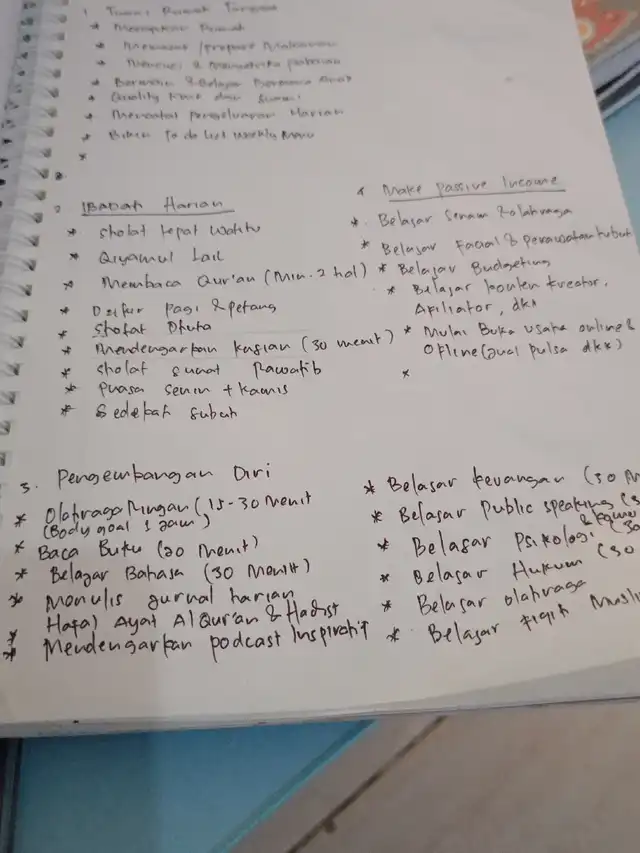 1. Rumah Tangga
* Merapikan Rumah
* Memasak / prepare Makanan
* Mencuci & Menyetrika pakaian
* Bermain & Belajar Bersama Anak
* Quality time dgn Suami
* Mencatat Pengeluaran Harian
* Bikin To do list weekly Menu
*
2. IBADAH HARIAN
* Sholat tepat waktu
* Qiyamul Lail
* Membaca Qur'an (Min. 2 hal)
* Dzikir pagi & petang
* Sholat Dhuha
* Mendengarkan Kajian (30 menit)
* Sholat sunat Rawatib
* Puasa Senin + Kamis
* Sedekah Subuh
4 Make Passive Income
* Belajar Senam & olahraga
* Belajar Facial & perawatan tubuh
* Belajar Budgeting
* Belajar konten kreator,
Afiliator, dkk
* Mulai Buka usaha online &
Ofline (jual pulsa dkk)
*
3. Pengembangan Diri
* Olahraga Ringan (15-30 Menit
(Body goal 1 jam)
* Baca Buku (20 Menit)
* Belajar Bahasa (30 Menit)
* Menulis jurnal harian
* Hafal Ayat Al Qur'an & Hadist
* Mendengarkan podcast Inspiratif
* Belajar keuangan (30 M
* Belajar Public speaking (3
* Belajar Psikologi
* Belajar Hukum (30
* Belajar olahraga
* Belajar Fiqih Musli